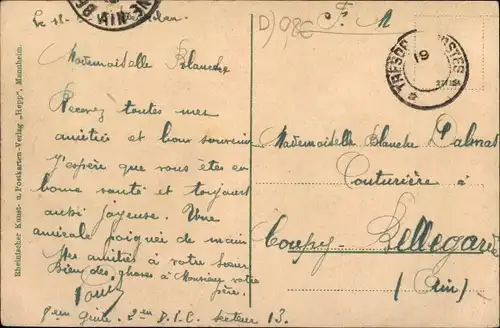 D) 980
F. M
TRESOR POSTES
19
Mademoiselle Blanche
Recevez toutes mes
amitiés et bon souvenir
J'espère que vous êtes en
bonne santé et toujours
aussi joyeuse. Une
amicale poignée de main
Mes amitiés à votre sœur
Bien des choses à Monsieur votre
père.
Louis
2em D.I.C. secteur 13.
Mademoiselle Blanche Dalmas
Couturière à
Coupy-Bellegarde
(Ain)
Rheinischer Kunst- u. Postkarten-Verlag „Hepp“, Mannheim.